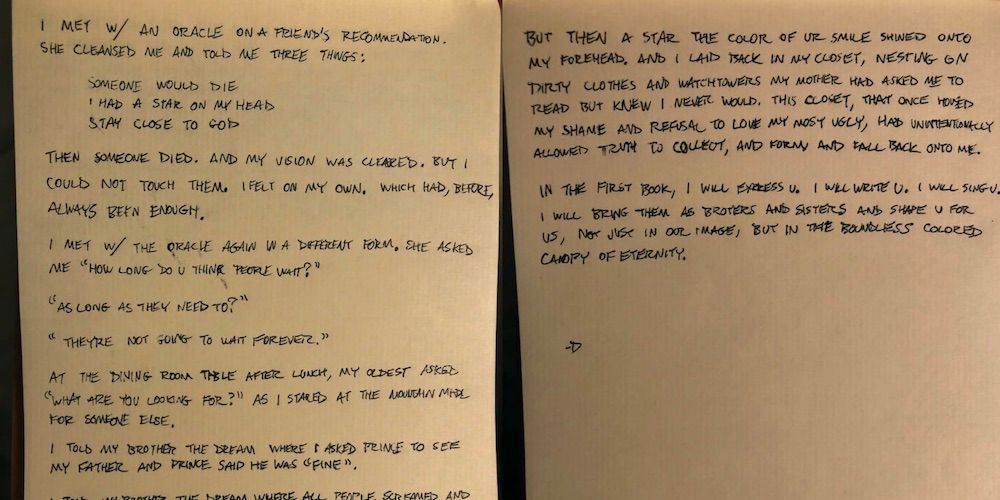 I MET W/ AN ORACLE ON A FRIEND'S RECOMMENDATION.
SHE CLEANSED ME AND TOLD ME THREE THINGS:
SOMEONE WOULD DIE
I HAD A STAR ON MY HEAD
STAY CLOSE TO GOD
THEN SOMEONE DIED. AND MY VISION WAS CLEARED. BUT I
COULD NOT TOUCH THEM. I FELT ON MY OWN. WHICH HAD, BEFORE,
ALWAYS BEEN ENOUGH.
I MET W/ THE ORACLE AGAIN IN A DIFFERENT FORM. SHE ASKED
ME "HOW LONG DO U THINK PEOPLE WAIT?"
"AS LONG AS THEY NEED TO?"
"THEYRE NOT GOING TO WAIT FOREVER."
AT THE DINING ROOM TABLE AFTER LUNCH, MY OLDEST ASKED
"WHAT ARE YOU LOOKING FOR?" AS I STARED AT THE MOUNTAIN MADE
FOR SOMEONE ELSE.
I TOLD MY BROTHER THE DREAM WHERE I ASKED PRINCE TO SEE
MY FATHER AND PRINCE SAID HE WAS "FINE".
I TOLD MY BROTHER THE DREAM WHERE ALL PEOPLE SCREAMED AND
BUT THEN A STAR THE COLOR OF UR SMILE SHINED ONTO
MY FOREHEAD. AND I LAID BACK IN MY CLOSET, NESTING ON
DIRTY CLOTHES AND WATCHTOWERS MY MOTHER HAD ASKED ME TO
READ BUT KNEW I NEVER WOULD. THIS CLOSET, THAT ONCE HOUSED
MY SHAME AND REFUSAL TO LOVE MY MOST UGLY, HAD UNINTENTIONALLY
ALLOWED TRUTH TO COLLECT, AND FORM AND FALL BACK ONTO ME.
IN THE FIRST BOOK, I WILL EXPRESS U. I WILL WRITE U. I WILL SING U.
I WILL BRING THEM AS BROTERS AND SISTERS AND SHAPE U FOR
US, NOT JUST IN OUR IMAGE, BUT IN THE BOUNDLESS COLORED
CANOPY OF ETERNITY.
-D